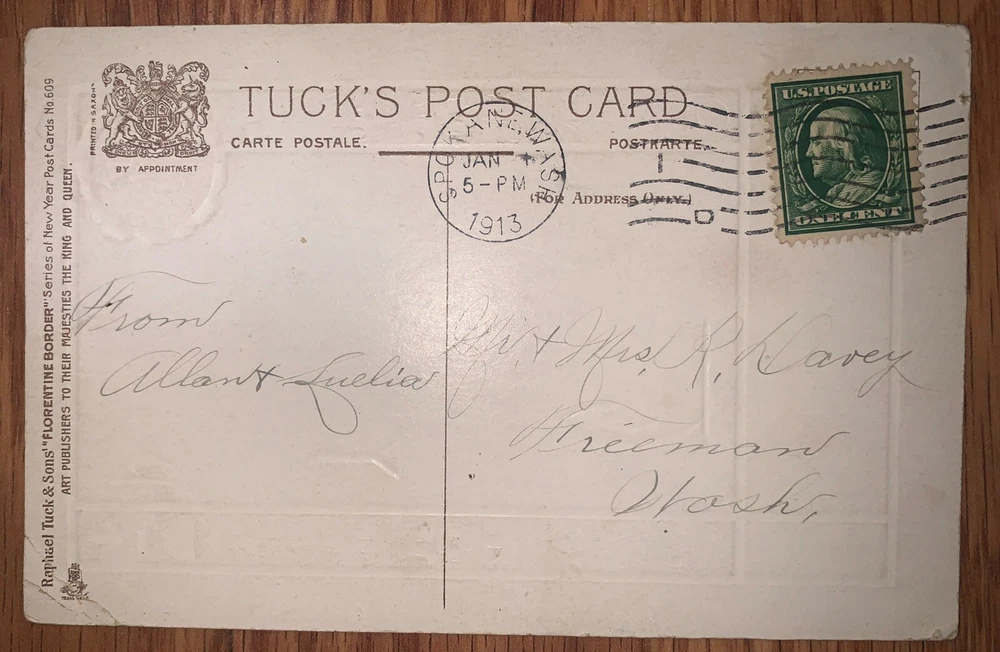 Raphael Tuck & Sons' "FLORENTINE BORDER" Series of New Year Post Cards No. 609
ART PUBLISHERS TO THEIR MAJESTIES THE KING AND QUEEN.
PRINTED IN SAXONY
BY APPOINTMENT
TUCK'S POST CARD
CARTE POSTALE.
POSTKARTE.
(FOR ADDRESS ONLY.)
SPOKANE, WASH
JAN
5-PM
1913
1
D
U.S. POSTAGE
ONE CENT
From
Allan & Luelia
Mr. & Mrs. R. Davey
Freeman
Wash.